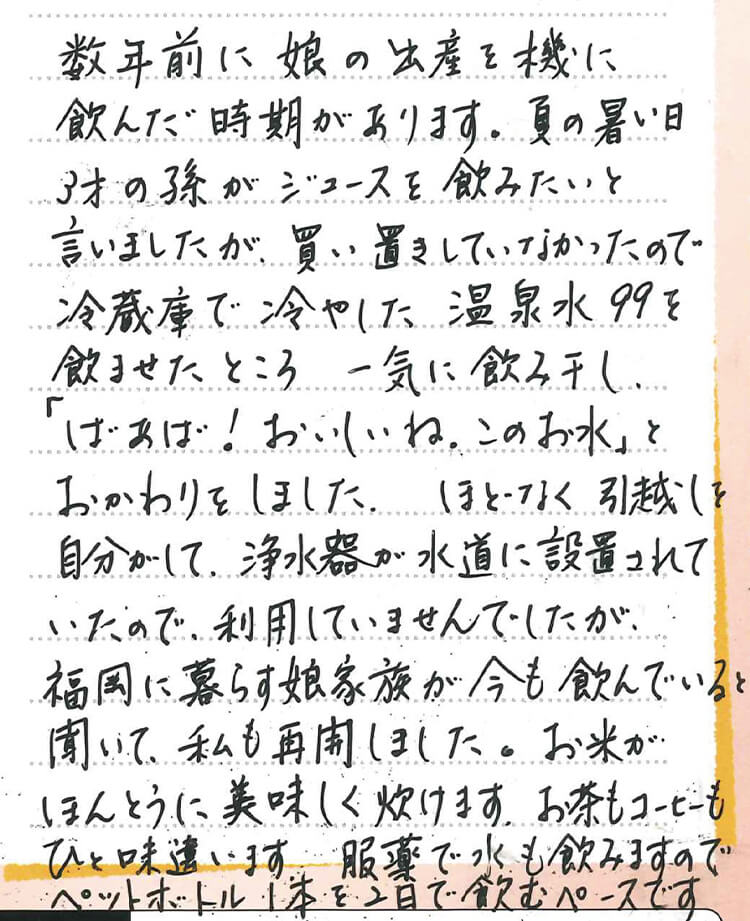 数年前に娘の出産を機に
飲んだ時期があります。夏の暑い日
3才の孫がジュースを飲みたいと
言いましたが、買い置きしていなかったので
冷蔵庫で冷やした温泉水99を
飲ませたところ 一気に飲み干し、
「ばあば！おいしいね。このお水」と
おかわりをしました。 ほどなく引越しを
自分がして、浄水器が水道に設置されて
いたので、利用していませんでしたが、
福岡に暮らす娘家族が今も飲んでいると
聞いて、私も再開しました。お米が
ほんとうに美味しく炊けます。お茶もコーヒーも
ひと味違います。 服薬で水も飲みますので
ペットボトル1本を2日で飲むペースです